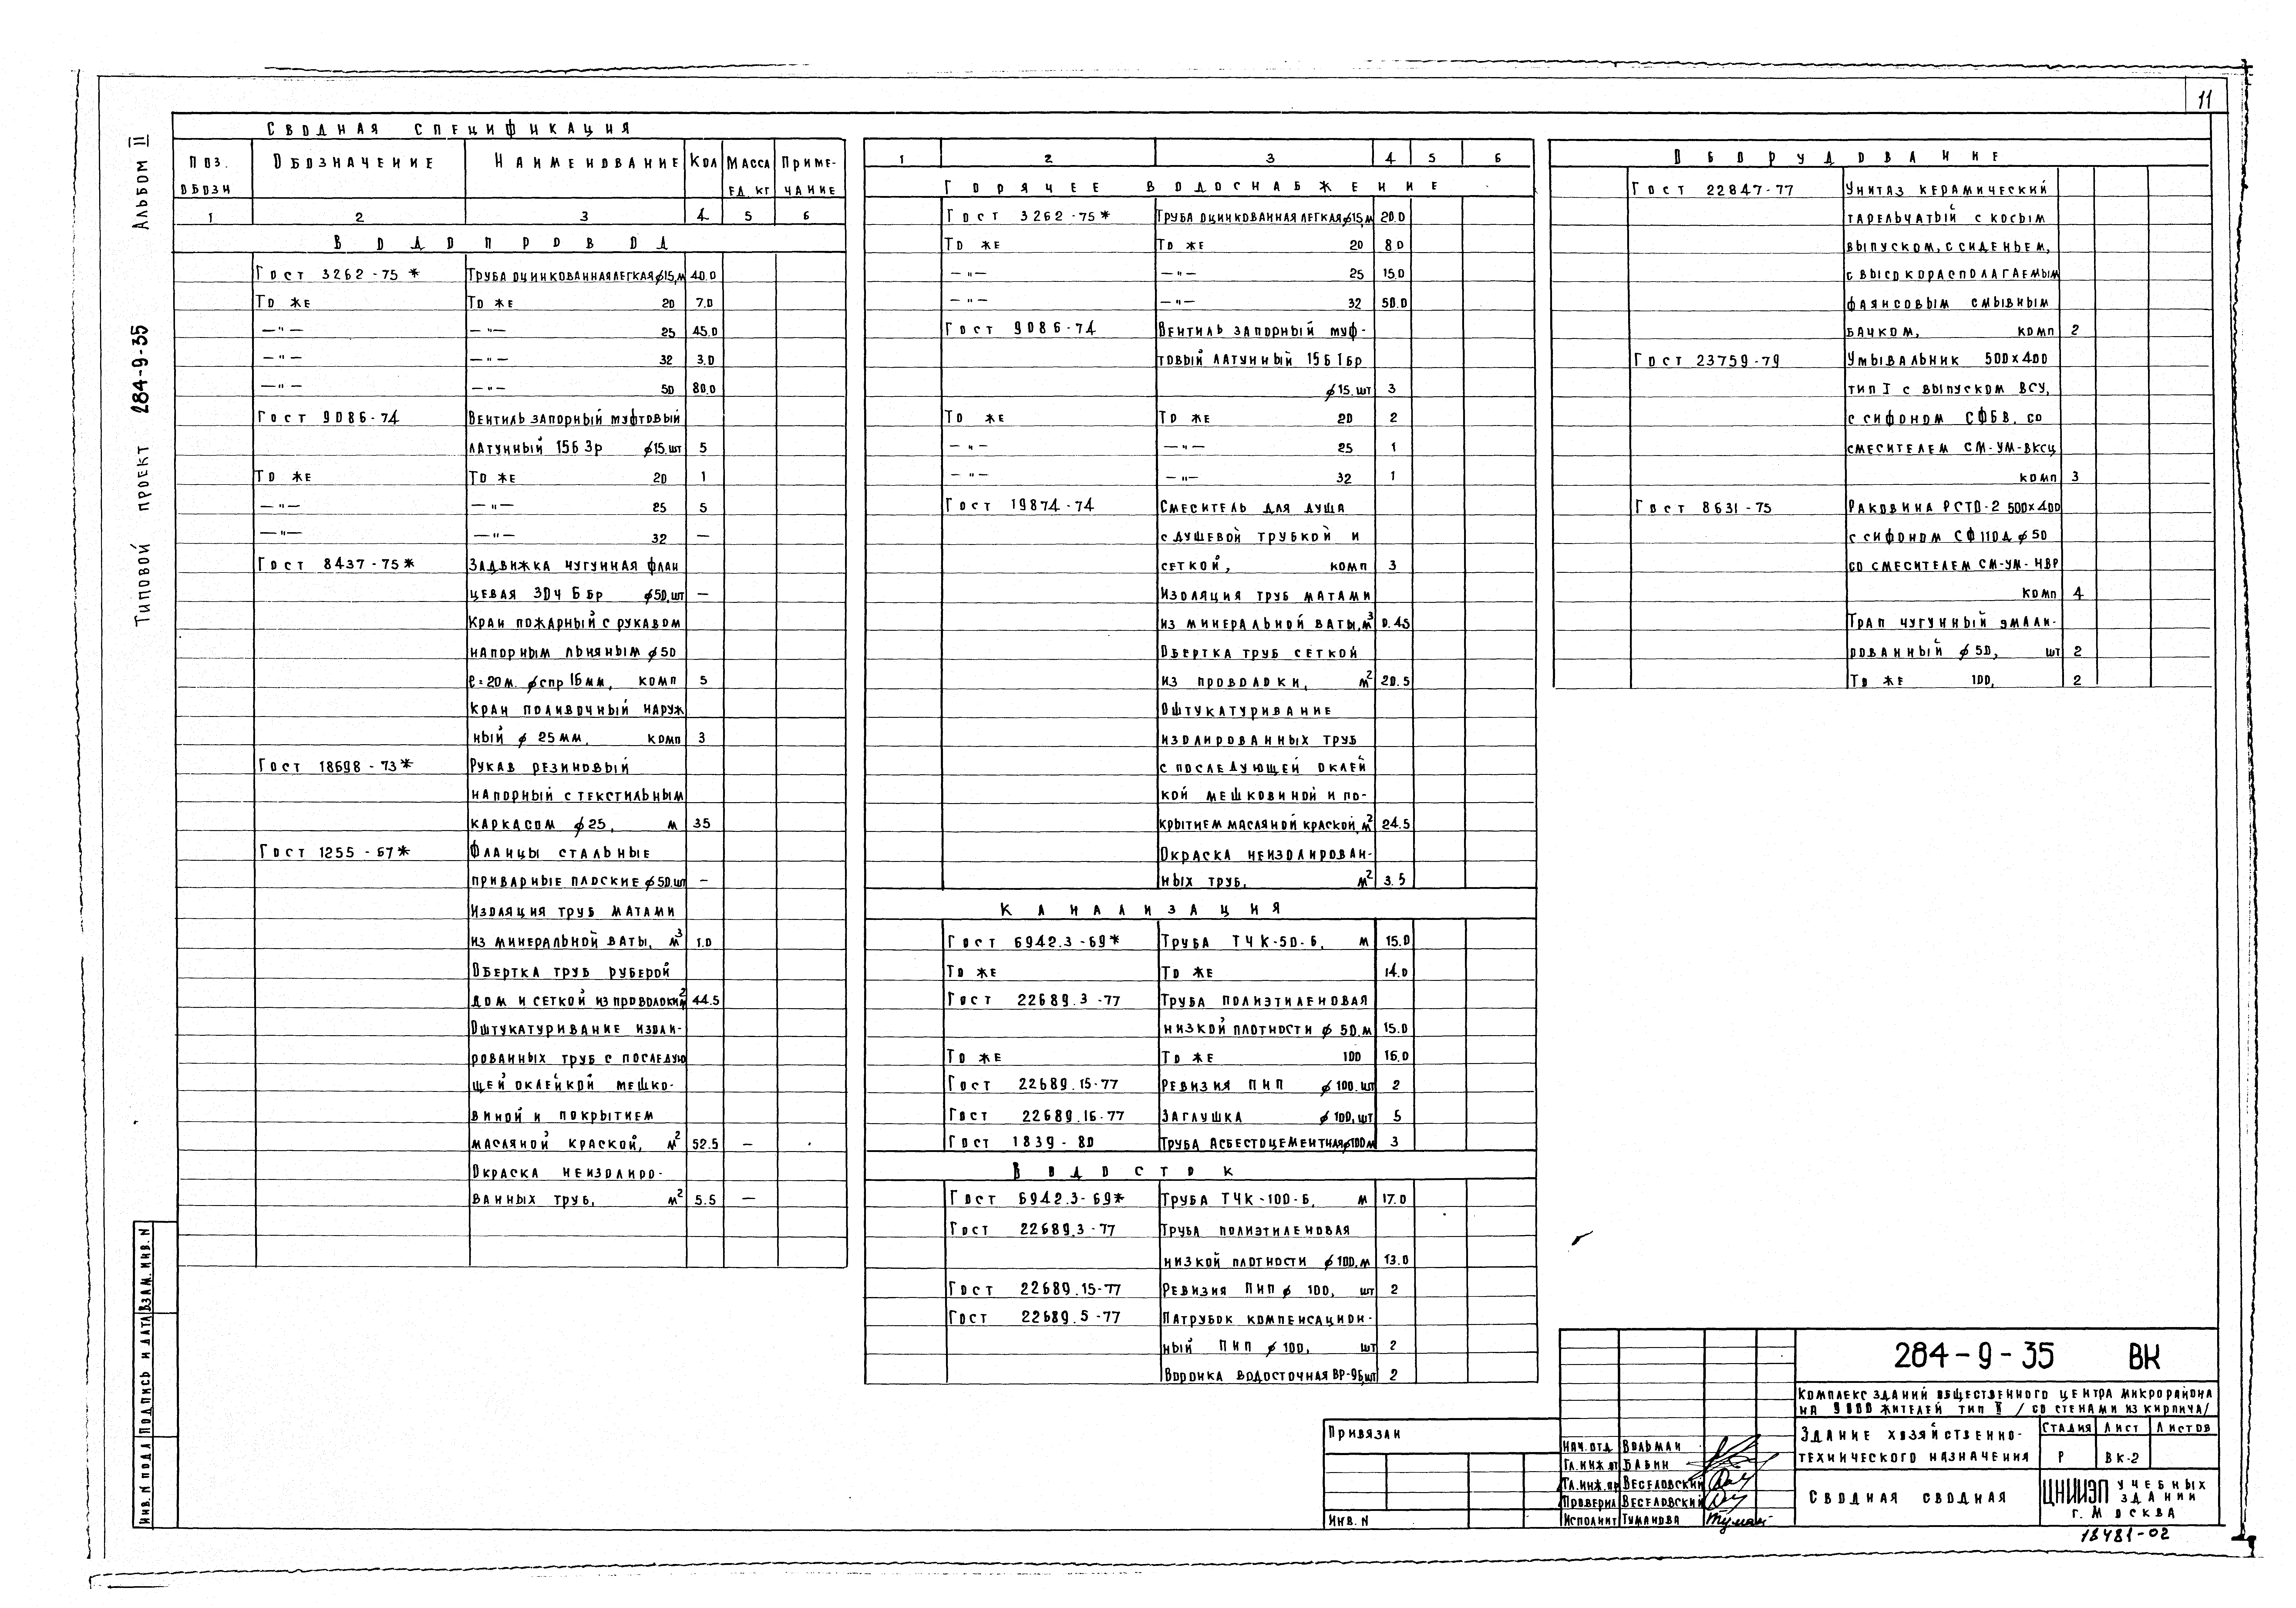 11
Альбом II
Типовой проект 284-9-35
Сводная спецификация
Поз. обозн | Обозначение | Наименование | Кол | Масса ед. кг | Примечание
1 | 2 | 3 | 4 | 5 | 6
Водопровод
Гост 3262-75* | Труба оцинкованная легкая ф15, м | 40.0
То же | То же 20 | 7.0
—"— | —"— 25 | 45.0
—"— | —"— 32 | 3.0
—"— | —"— 50 | 80.0
Гост 9086-74 | Вентиль запорный муфтовый
латунный 15б 3р ф15, шт | 5
То же | То же 20 | 1
—"— | —"— 25 | 5
—"— | —"— 32 | —
Гост 8437-75* | Задвижка чугунная флан
цевая 30ч 6 бр ф50, шт | —
Кран пожарный с рукавом
напорным льняным ф50
ℓ=20м. фспр 16мм, комп | 5
Кран поливочный наруж
ный ф 25мм, комп | 3
Гост 18698-73* | Рукав резиновый
напорный с текстильным
каркасом ф25, м | 35
Гост 1255-67* | Фланцы стальные
приварные плоские ф50, шт | —
Изоляция труб матами
из минеральной ваты, м3 | 1.0
Обертка труб руберой
дом и сеткой из проволоки м2 | 44.5
Оштукатуривание изоли-
рованных труб с последую
щей оклейкой мешко-
виной и покрытием
масляной краской, м2 | 52.5 | —
Окраска неизолиро-
ванных труб, м2 | 5.5 | —
1 | 2 | 3 | 4 | 5 | 6
Горячее водоснабжение
Гост 3262-75* | Труба оцинкованная легкая ф15, м | 20.0
То же | То же 20 | 8.0
—"— | —"— 25 | 15.0
—"— | —"— 32 | 50.0
Гост 9086-74 | Вентиль запорный муф-
товый латунный 15б1бр
ф15, шт | 3
То же | То же 20 | 2
—"— | —"— 25 | 1
—"— | —"— 32 | 1
Гост 19874-74 | Смеситель для душа
с душевой трубкой и
сеткой, комп | 3
Изоляция труб матами
из минеральной ваты, м3 | 0.45
Обертка труб сеткой
из проволоки, м2 | 20.5
Оштукатуривание
изолированных труб
с последующей оклей
кой мешковиной и по-
крытием масляной краской, м2 | 24.5
Окраска неизолирован-
ных труб, м2 | 3.5
Канализация
Гост 6942.3-69* | Труба ТЧК-50-6, м | 15.0
То же | То же | 14.0
Гост 22689.3-77 | Труба полиэтиленовая
низкой плотности ф 50, м | 15.0
То же | То же 100 | 16.0
Гост 22689.15-77 | Ревизия ПНП ф100, шт | 2
Гост 22689.16-77 | Заглушка ф100, шт | 5
Гост 1839-80 | Труба асбестоцементная ф100 м | 3
Водосток
Гост 6942.3-69* | Труба ТЧК-100-6, м | 17.0
Гост 22689.3-77 | Труба полиэтиленовая
низкой плотности ф100, м | 13.0
Гост 22689.15-77 | Ревизия ПНП ф 100, шт | 2
Гост 22689.5-77 | Патрубок компенсацион-
ный ПНП ф100, шт | 2
Воронка водосточная ВР-9б, шт | 2
Оборудование
Гост 22847-77 | Унитаз керамический
тарельчатый с косым
выпуском, с сиденьем,
с высокорасполагаемым
фаянсовым смывным
бачком, комп | 2
Гост 23759-79 | Умывальник 500х400
тип I с выпуском ВСУ,
с сифоном СФБВ, со
смесителем СМ-УМ-ВКСЦ
комп | 3
Гост 8631-75 | Раковина РСТО-2 500х400
с сифоном СФ110Д ф50
со смесителем СМ-УМ-НВР
комп | 4
Трап чугунный эмали-
рованный ф50, шт | 2
То же 100, | 2
Взам. инв. N
Подпись и дата
Инв. N подл
Привязан
Инв. N
Нач. отд Вольман
Гл. инж. от Бабин
Гл. инж. пр Веселовский
Проверил Веселовский
Исполнит Туманова
284-9-35 ВК
Комплекс зданий общественного центра микрорайона
на 9000 жителей тип II /со стенами из кирпича/
Здание хозяйственно-
технического назначения
Стадия | Лист | Листов
Р | ВК-2
Сводная сводная
ЦНИИЭП учебных зданий
г. Москва
18481-02